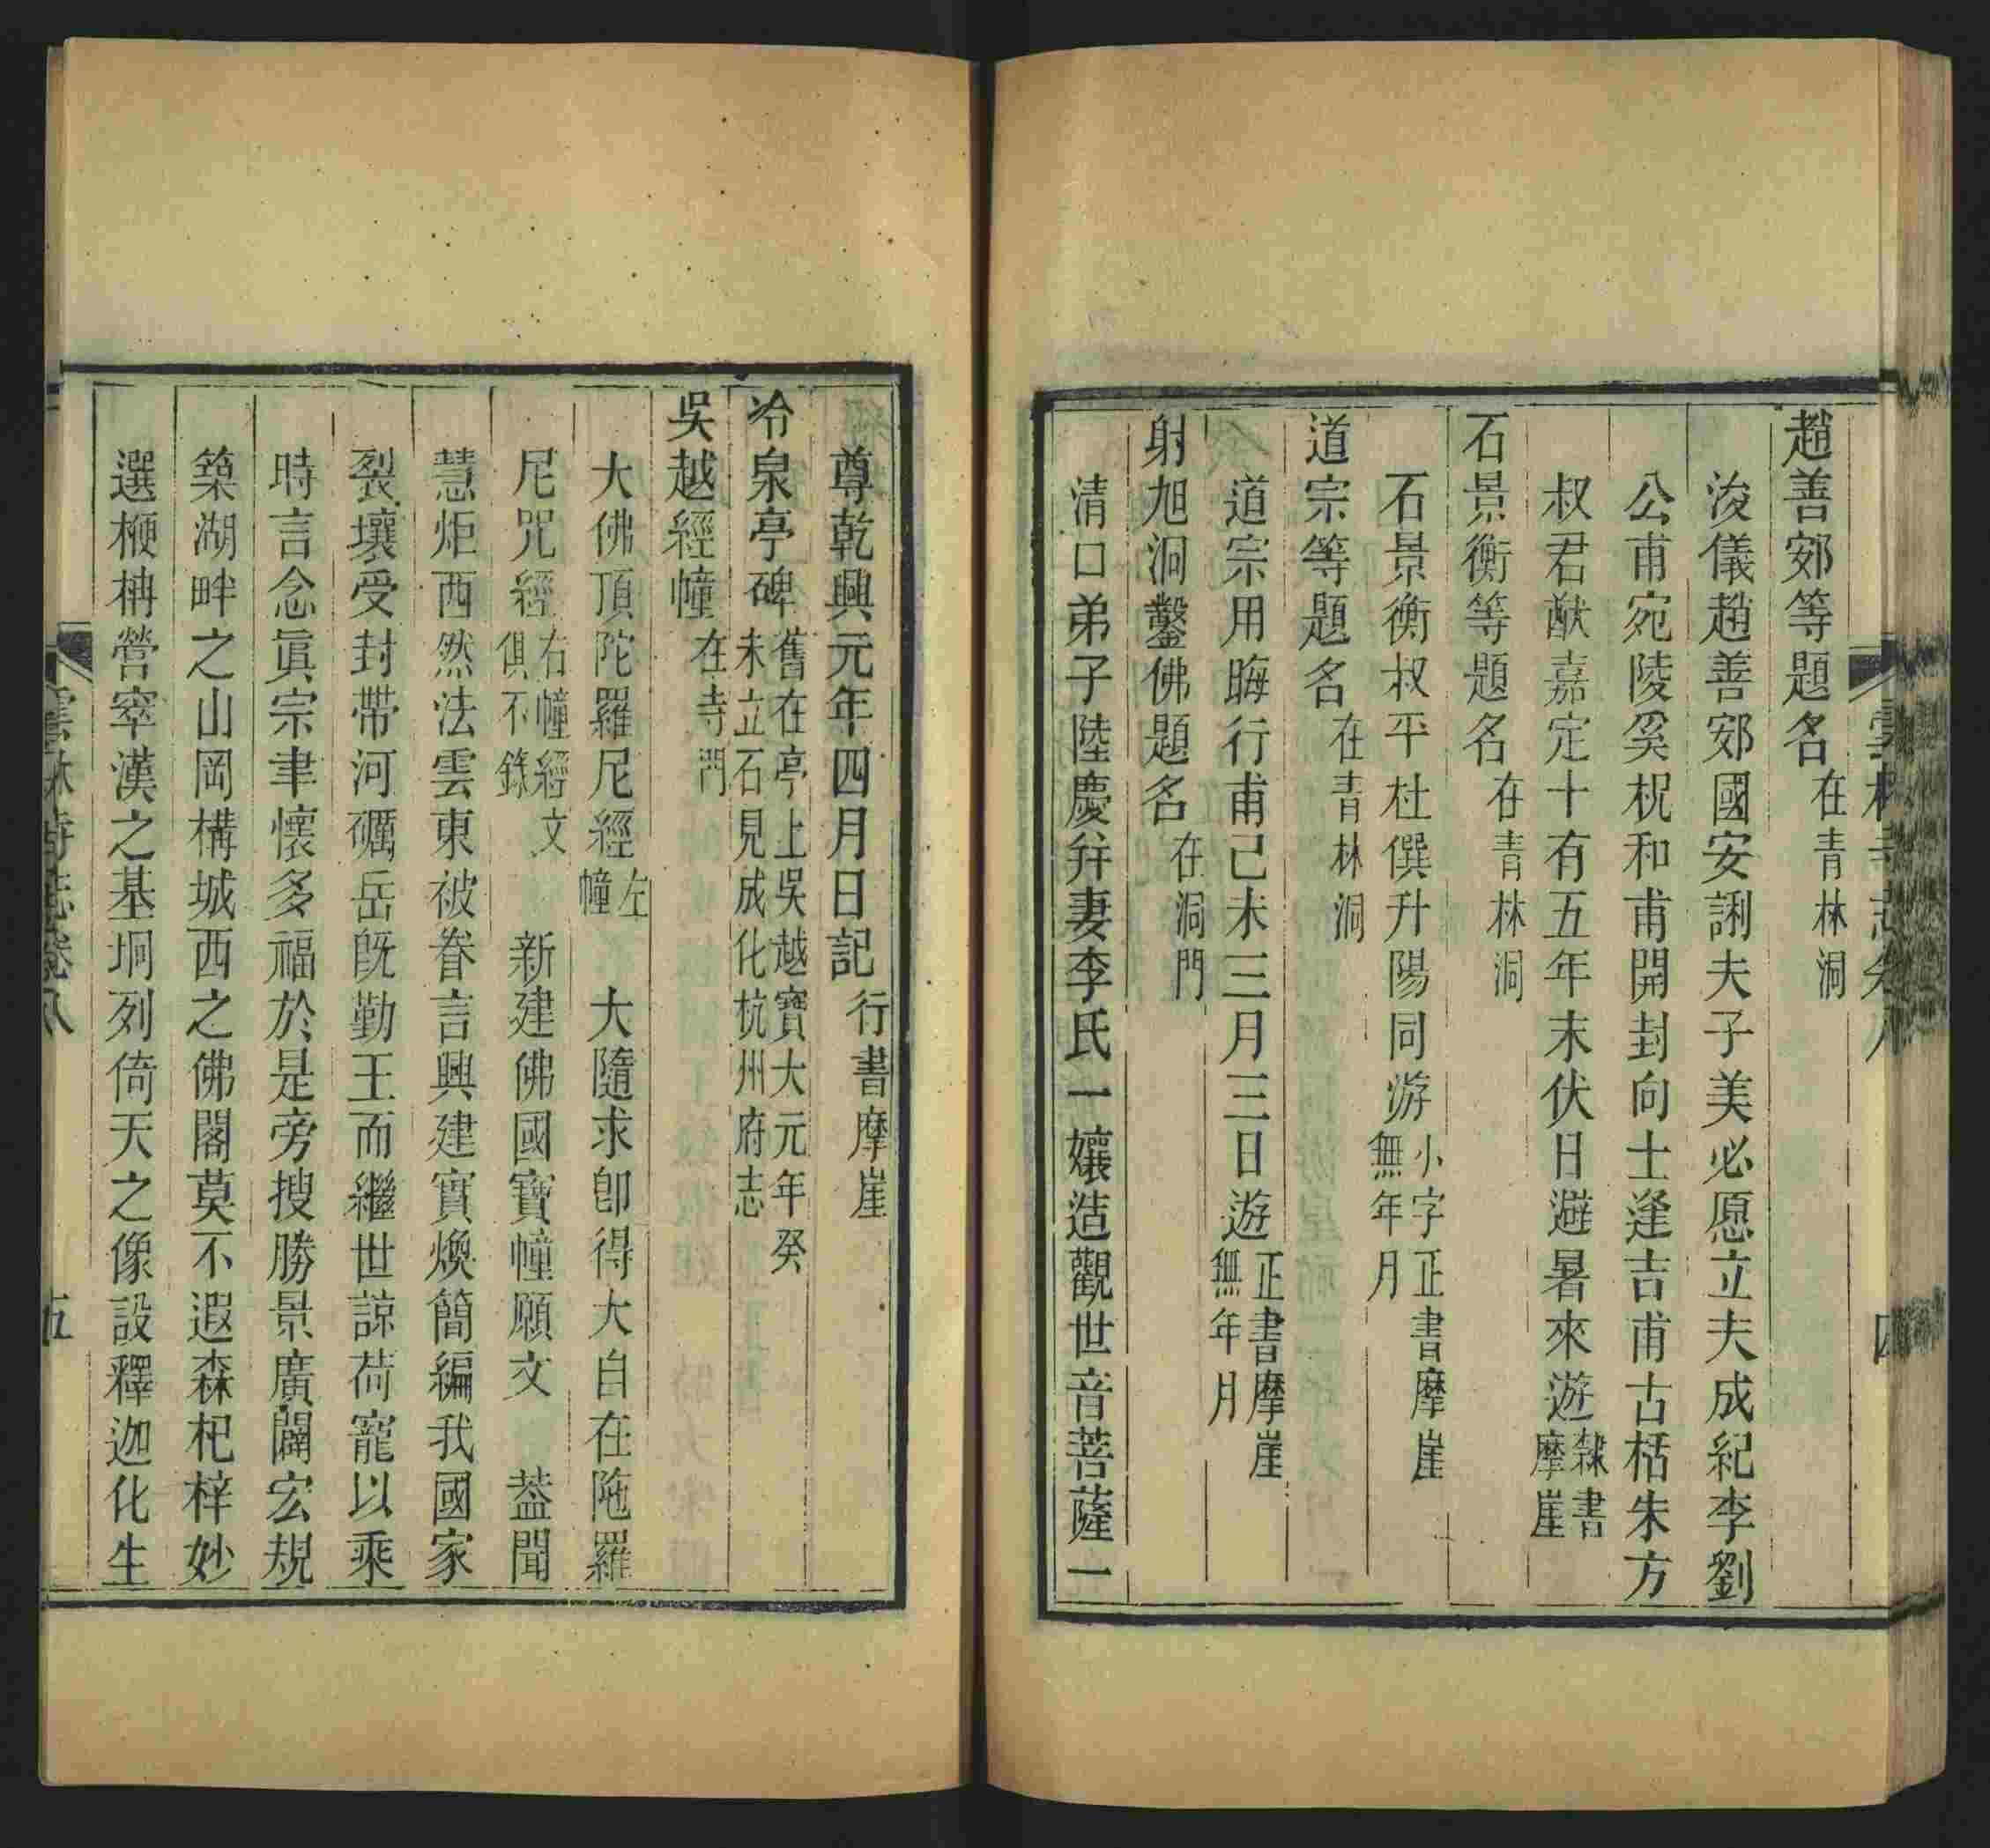 趙善郊等題名在青林洞
浚儀趙善郊國安詶夫子美必愿立夫成紀李劉
公甫宛陵奚枧和甫開封向士逢吉甫古栝朱方
叔君猷嘉定十有五年末伏日避暑來遊隸書摩崖
石景衡等題名在青林洞
石景衡叔平杜僎升陽同游小字正書摩崖無年月
道宗等題名在青林洞
道宗用晦行甫己未三月三日遊正書摩崖無年月
射旭洞鑿佛題名在洞門
清口弟子陸慶弁妻李氏一孃造觀世音菩薩一
尊乾興元年四月日記行書摩崖
冷泉亭碑舊在亭上吳越寶大元年癸未立石見成化杭州府志
吳越經幢在寺門
大佛頂陀羅尼經左幢　大隨求卽得大自在陁羅
尼咒經右幢經文俱不錄　新建佛國寶幢願文　葢聞
慧炬西然法雲東被眷言興建實煥簡編我國家
裂壤受封帶河礪岳旣勤王而繼世諒荷寵以乘
時言念眞宗聿懷多福於是旁搜勝景廣闢宏規
築湖畔之山岡構城西之佛閣莫不遐森杞梓妙
選楩柟營窣漢之基坰列倚天之像設釋迦化生
雲林寺志卷八
五